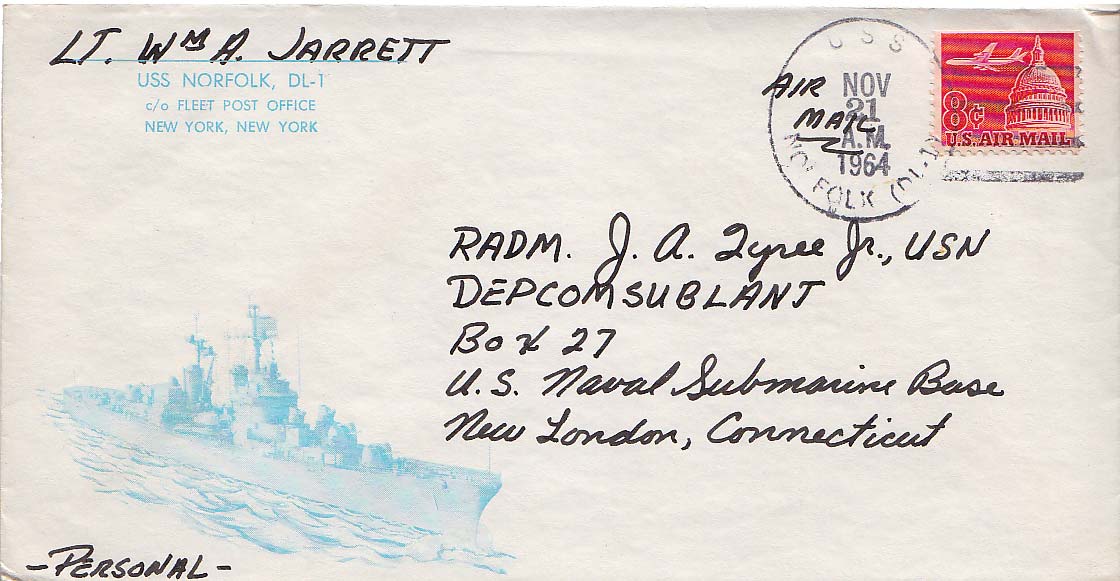 LT. Wm A. JARRETT
USS NORFOLK, DL-1
c/o FLEET POST OFFICE
NEW YORK, NEW YORK
AIR MAIL
USS
NOV
21
A.M.
1964
NORFOLK (DL-1)
8¢
U.S. AIR MAIL
RADM. J. A. Tyree Jr., USN
DEPCOMSUBLANT
Box 27
U.S. Naval Submarine Base
New London, Connecticut
-PERSONAL-